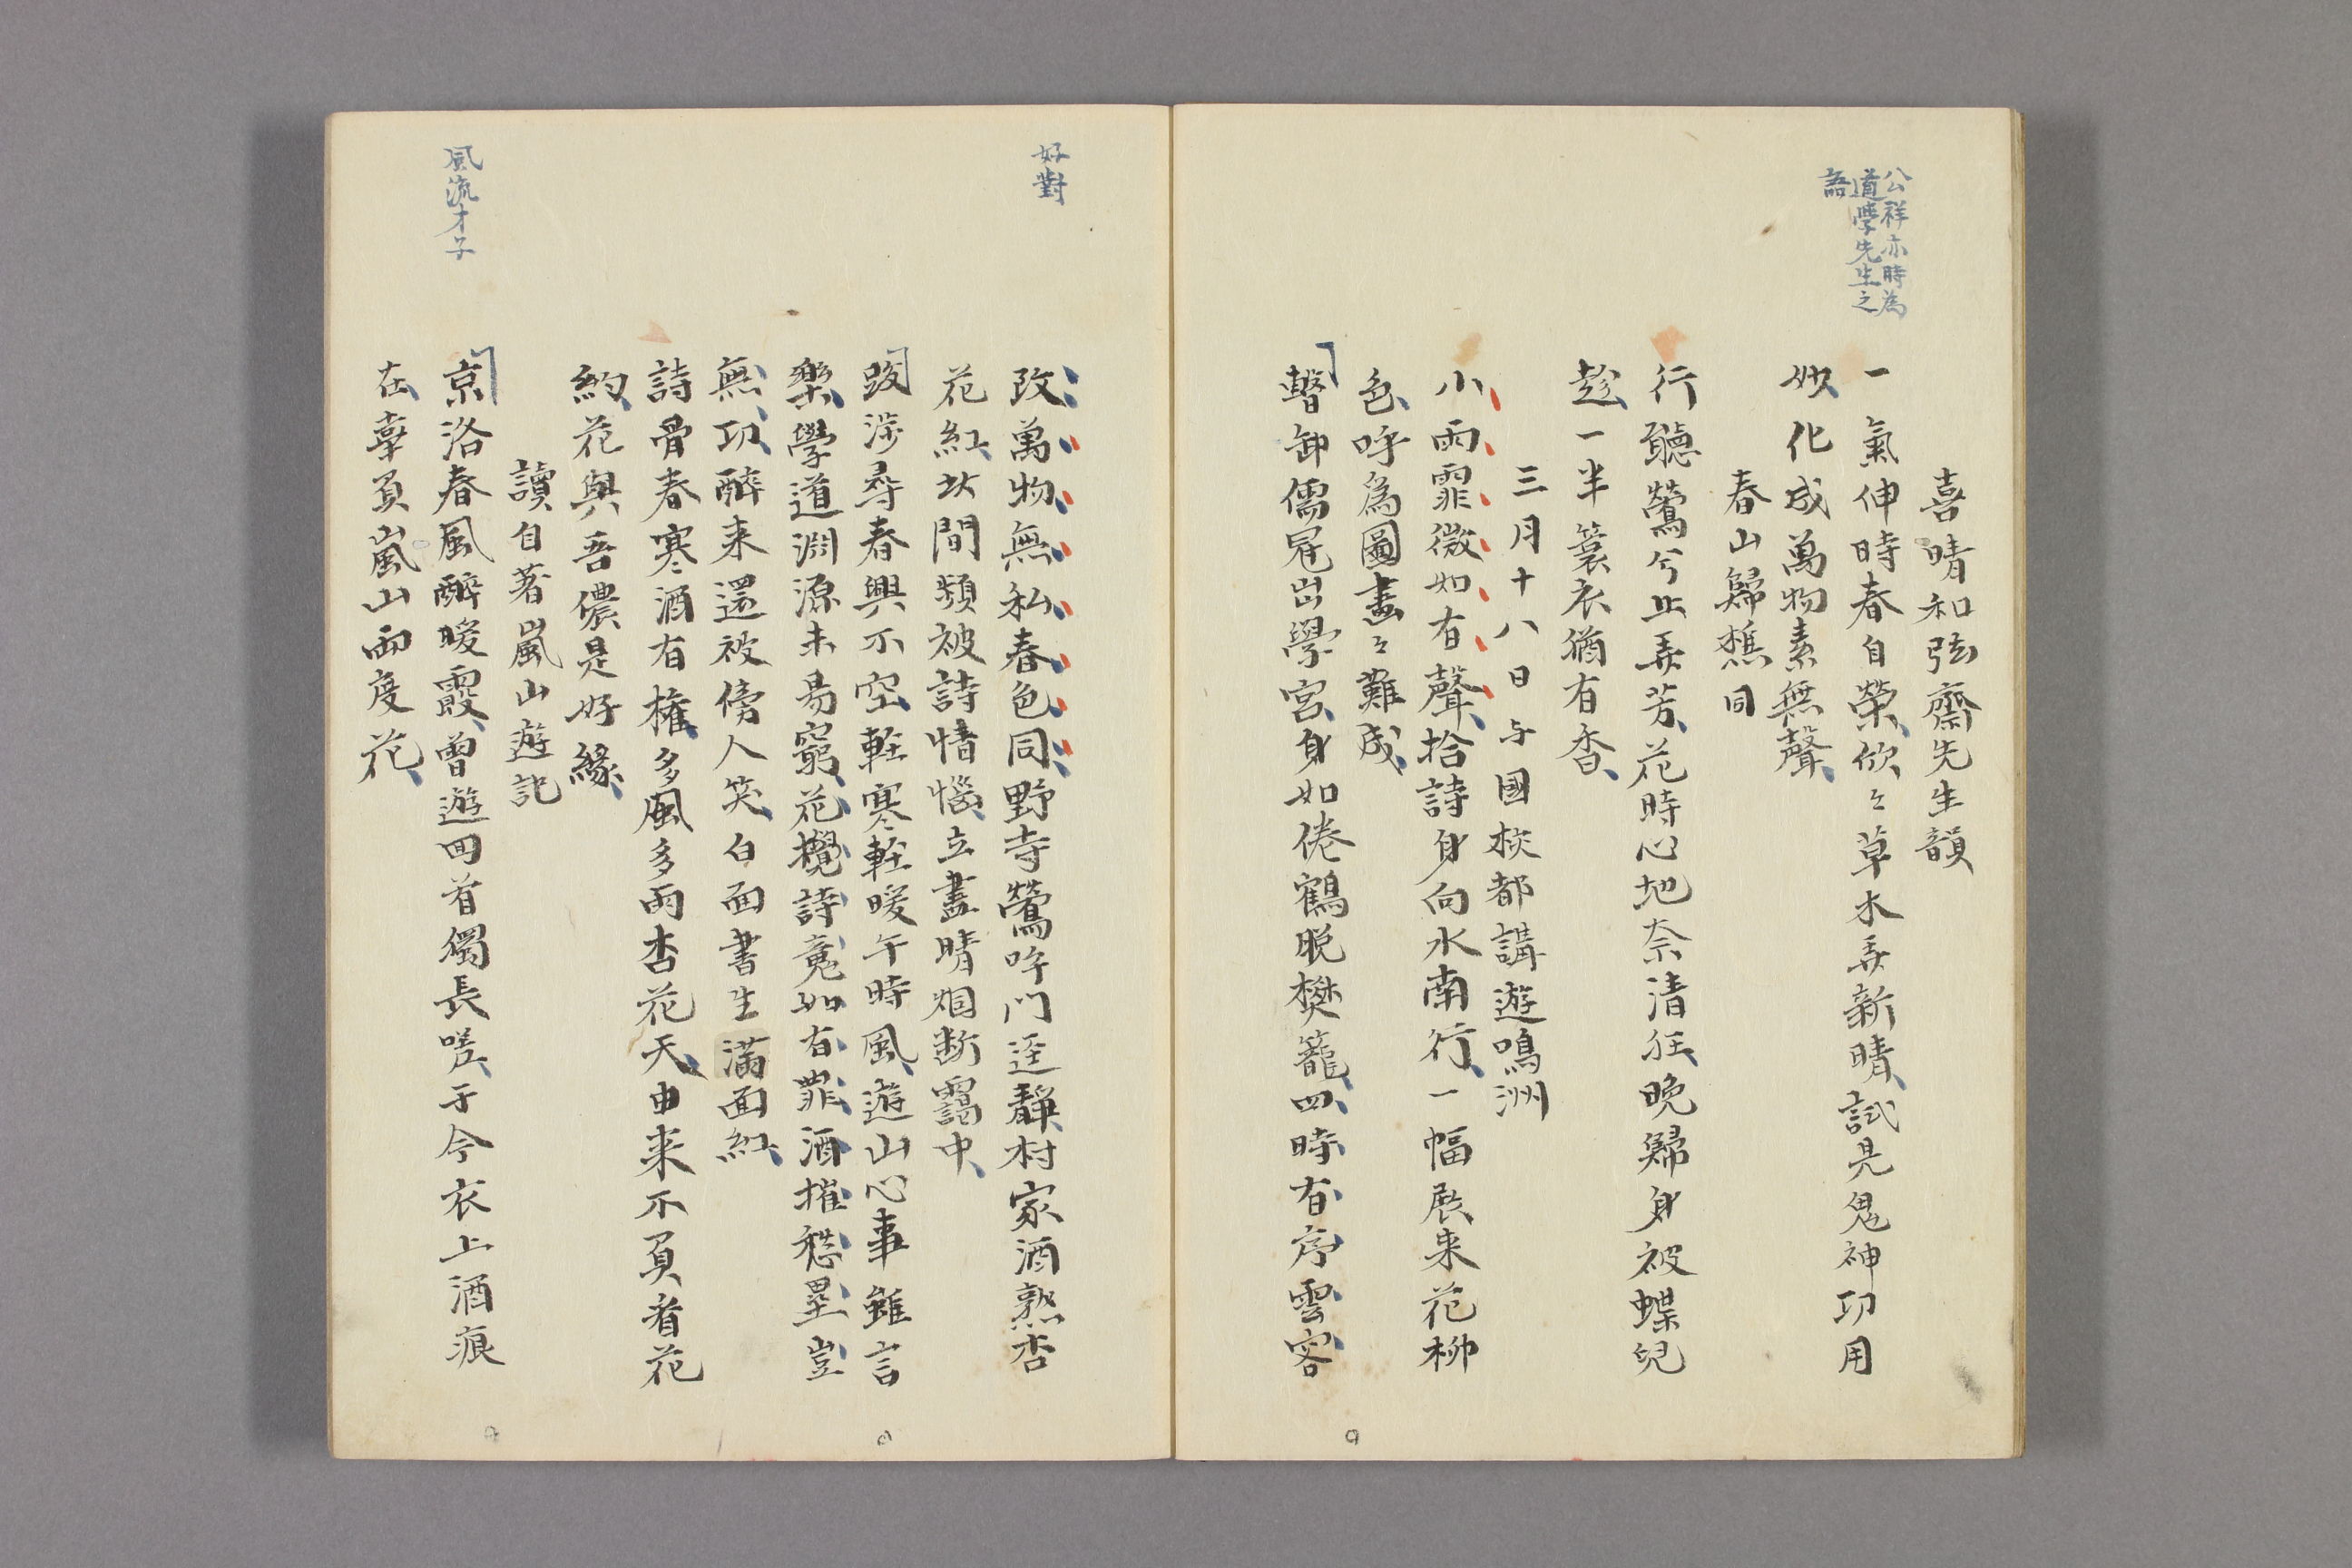 公祥亦時為
道學先生之
語
喜晴和弦齋先生韻
一氣伸時春自榮欣々草木弄新晴試見鬼神功用
妙化成萬物素無聲
春山歸樵同
行聽鶯兮止弄芳花時心地奈清狂晚歸身被蝶兒
趁一半簑衣猶有香
三月十八日与國校都講遊鳴洲
小雨霏微如有聲拾詩身向水南行一幅展来花柳
色呼為圖畫々難成
暫卸儒冠出學宮身如倦鶴脱樊籠四時有序雲容
好對
改萬物無私春色同野寺鶯啼門逕靜村家酒熟杏
花紅此間頻被詩情惱立盡晴烟断靄中
跋涉尋春興不空輕寒輕暖午時風遊山心事雖言
樂學道淵源未易窮花攪詩竟如有罪酒摧愁壘豈
無功醉来還被傍人笑白面書生滿面紅
詩骨春寒酒有權多風多雨杏花天由来不負看花
約花與吾儂是好緣
讀自著嵐山遊記
風流才子
京洛春風醉暖霞曾遊回首獨長嗟于今衣上酒痕
在辜負嵐山兩度花